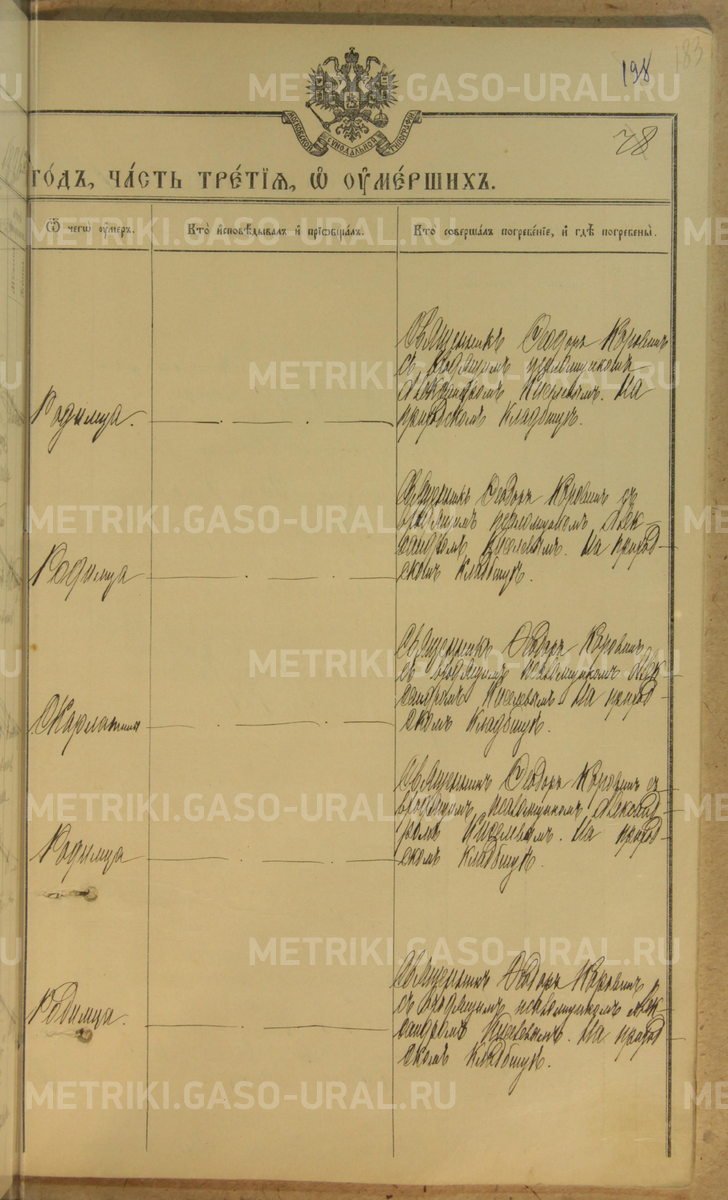 183
198
78
МОСКОВСКОЙ СѴНОДАЛЬНОЙ ТИПОГРАФІИ
го́дъ, ча́сть тре́тїѧ, ѡ҆ ᲂу҆ме́ршихъ.
Ѿ чегѡ̀ ᲂу҆́меръ.
Кто̀ и҆сповѣ́дывалъ и҆ прїѡбща́лъ.
Кто̀ соверша́лъ погребе́нїе, и҆ гдѣ̀ погребены̀.
Родимца.
Священникъ Ѳеодоръ Коровинъ
съ псаломщикомъ
Александромъ Киселевымъ. На
приходскомъ кладбищѣ.
Родимца
Священникъ Ѳеодоръ Коровинъ съ
псаломщикомъ Алек
сандромъ Киселевымъ. На приход
скомъ кладбищѣ.
Скарлатина
Священникъ Ѳеодоръ Коровинъ
съ псаломщикомъ Алек
сандромъ Киселевымъ. На приход
скомъ кладбищѣ.
Родимца
Священникъ Ѳеодоръ Коровинъ съ
псаломщикомъ Александ
ромъ Киселевымъ. На приход
скомъ кладбищѣ.
Родимца.
Священникъ Ѳеодоръ Коровинъ
съ псаломщикомъ Алек
сандромъ Киселевымъ. На приход
скомъ кладбищѣ.
METRIKI.GASO-URAL.RU